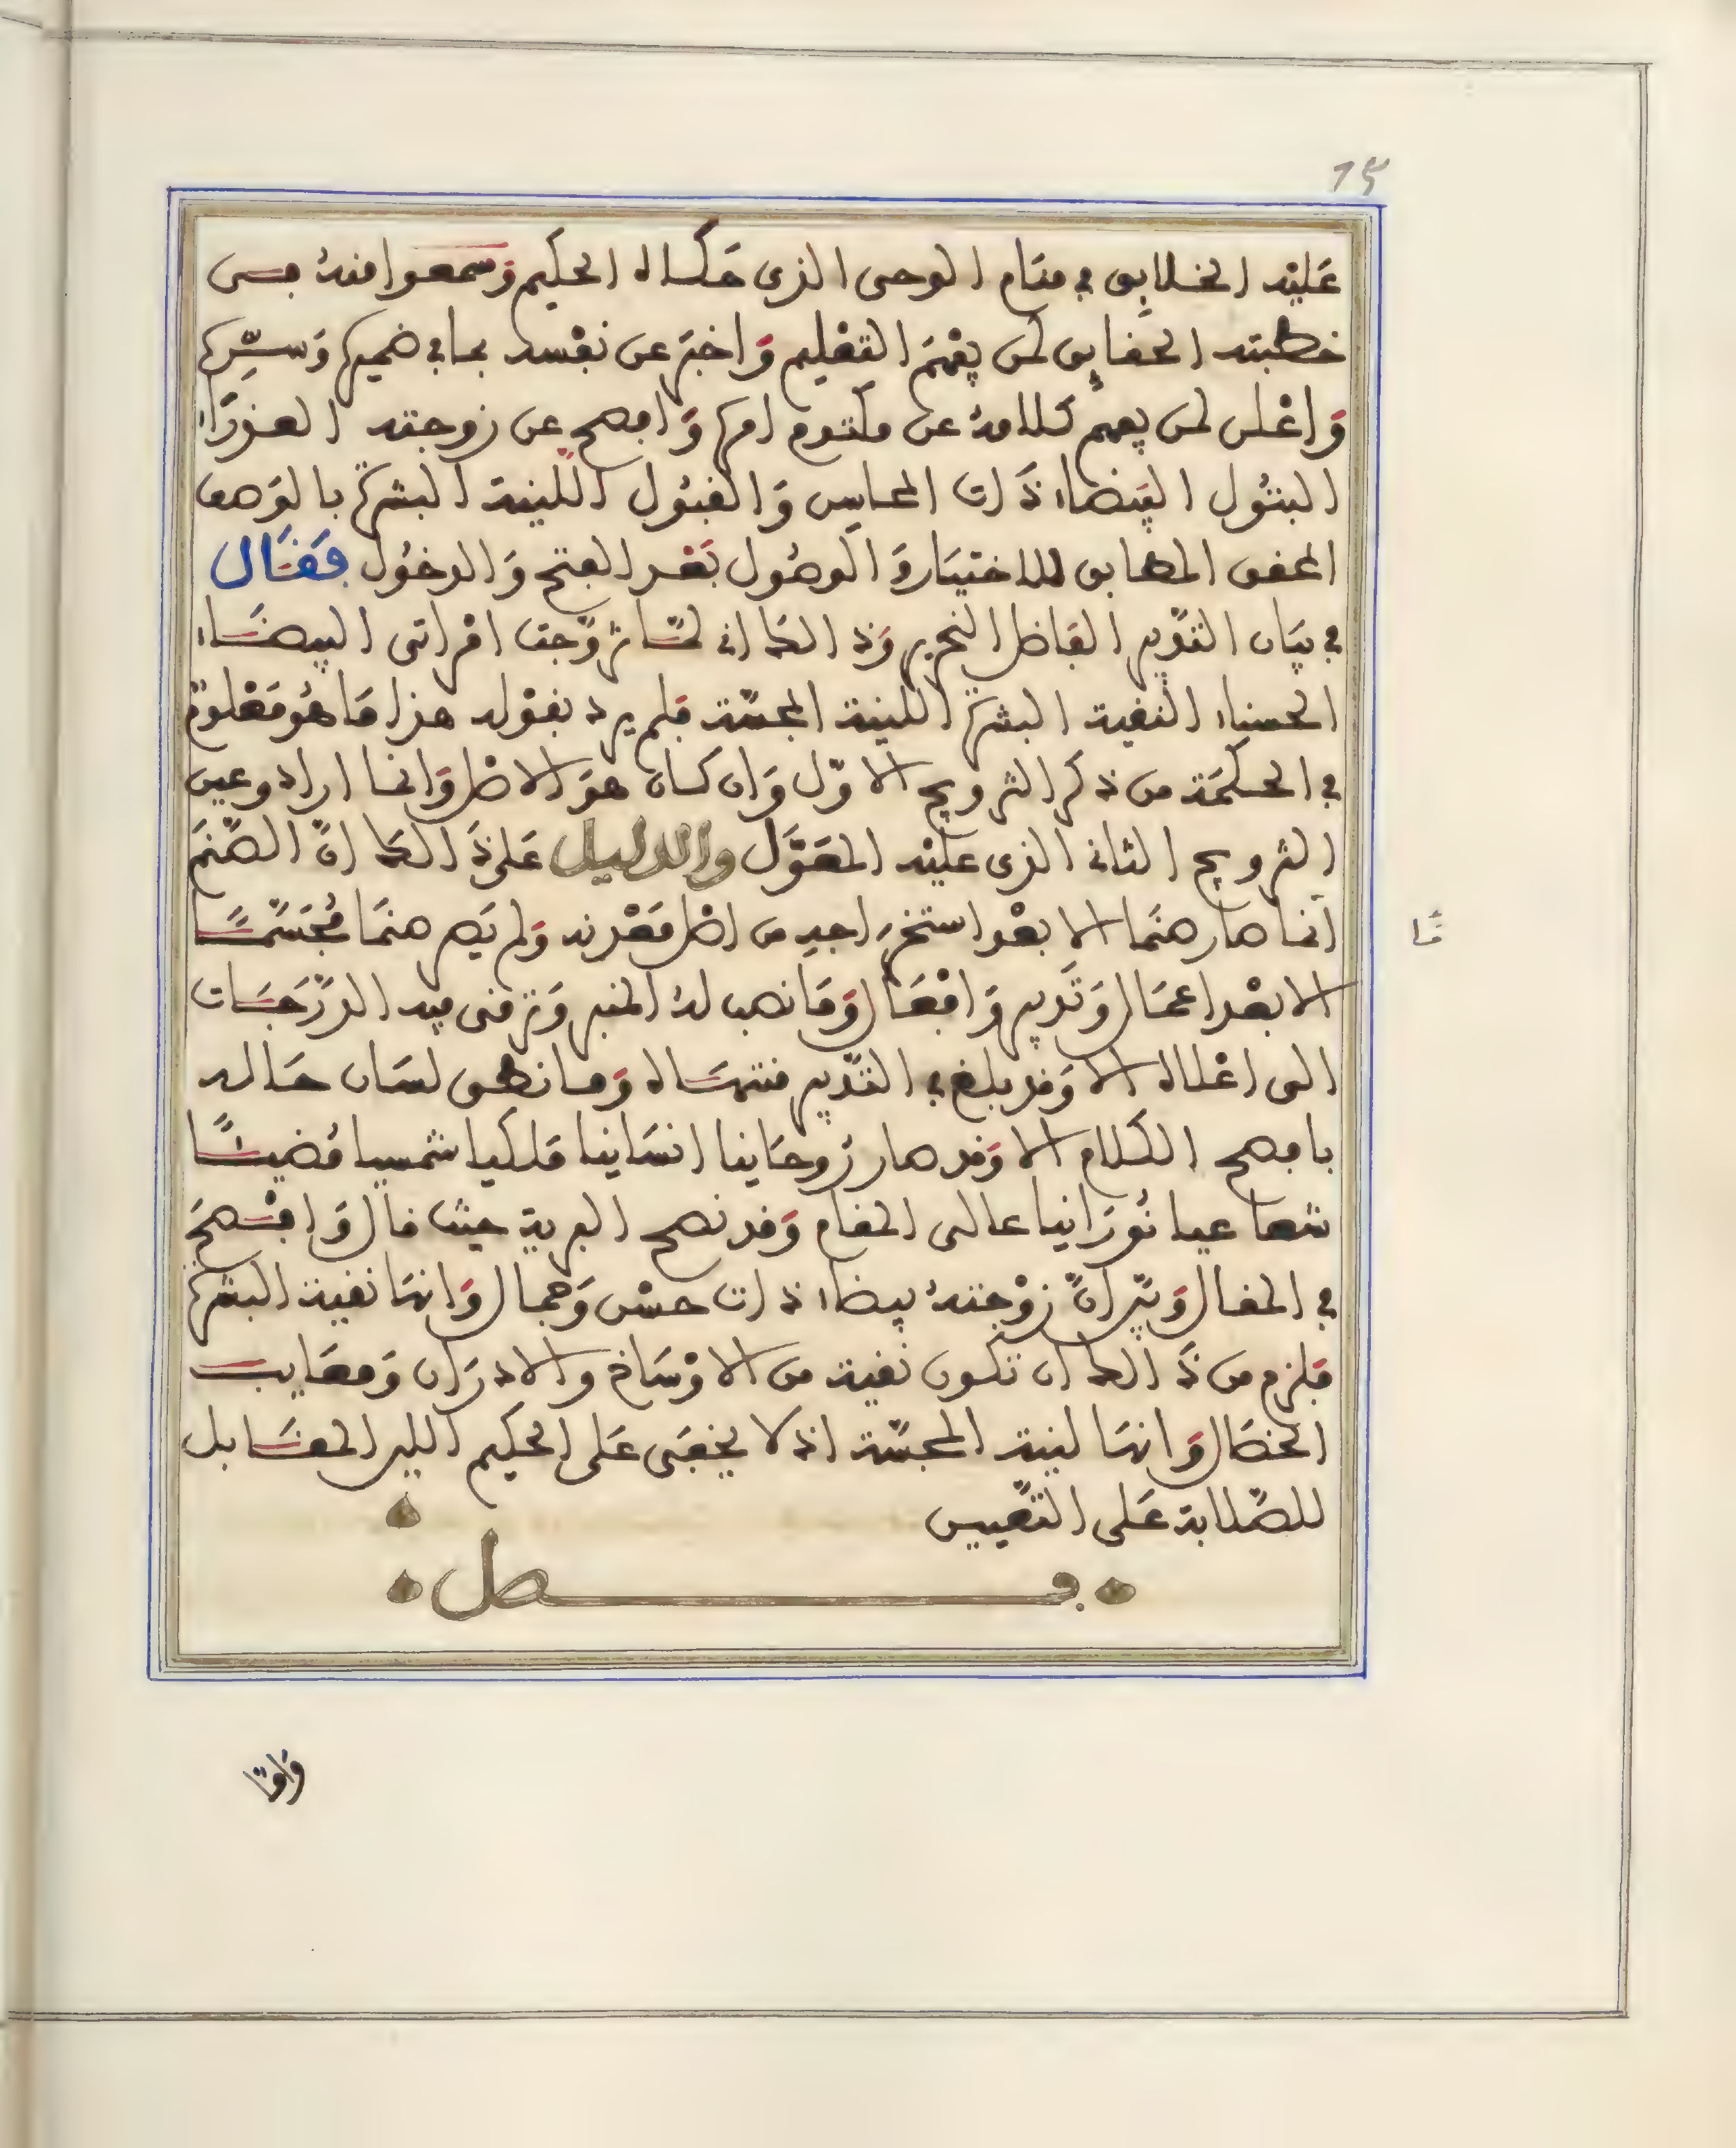 75
عَليْه الخلايق في منام الوحى الذى حكاه الحكيم وَسمعوا منهُ حسن
خطبته الحقايق لمن يفهَم التعْليم وَاخبرَ عن نفْسه بما في ضميره وَسِرّه
وَاعْلن لمن يفهم كلامهُ عن مكتوم امره وَافصح عن زوجته العذرَاء
البتُول البيْضاء ذَات المحاسِن وَالقبُول اللينة البشرة بالوَصف
المحقق المطابق للاختيَار وَالوصُول بَعْد الفتح وَالدخُول فَقَال
في بيَان التدْبير الفَاضل النحرير وَذلك انى لمّا تزوّجت امْراتى البيضَاء
الحسناء النقية البشرة اللينة المجسّة فلم يرد بقوْله هذا مَا هُو مَعْلوم
في الحكمَة من ذكر التزويج الاوّل وَان كان هوَ الاصْل وَانما اراد وعين
التزويج الثانى الذى عليْه المعَوَّل والدليل عَلى ذَلك انَّ الصّنَم
انما صار صنَما الا بعْد استخرِاجه من اصْل مَعْدنه وَلم يَصر صنمَا مُجَسّمًا
الا بعْد اعمَال وَتَدبير وَافْعَال وَمَا نصب لهُ المنبر وَترقى فيه الدّرَجَات
الى اعْلاه الا وَقد بلغ في التدْبير منتهَاه وَما نطق لسَان حَاله
بافصح الكلام الا وَقد صار رُوحَانيا انسَانيا مَلكيا شمسيا مُضيئًا
شعاعيا نُورَانيا عالى المقام وَقد نصح البرية حيث قال وَافْصحَ
في المقال وَبيّن انّ زوْجتهُ بيضاء ذات حسْن وَجمال وَانهَا نقية البشرة
فلزم من ذَلك ان تكون نقية من الاوْسَاخ والادرَان وَمعَايب
الخصَال وَانهَا لينة المجسّة اذ لا يخفَى عَلى الحكيم اللين المقَابل
للصّلابة عَلى التعْيين
فصل
مًا
وَامّا